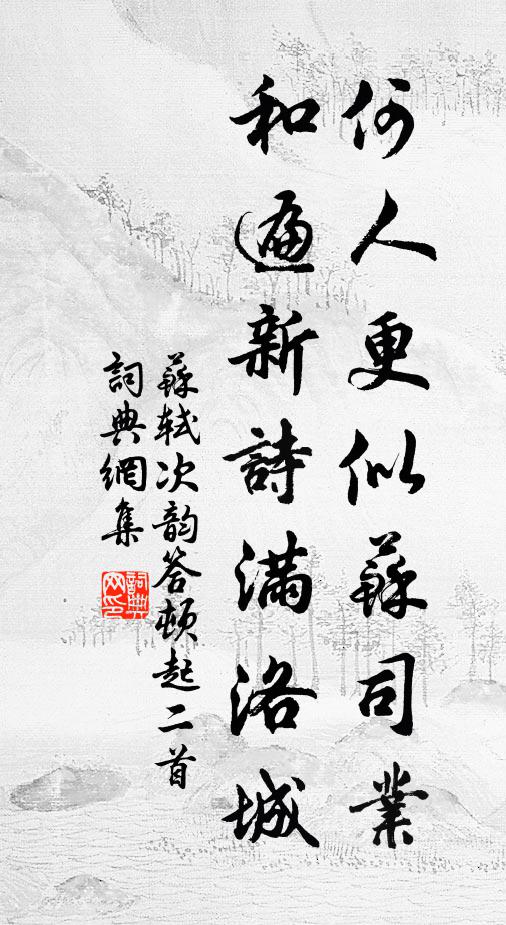 何人更似蘇司業
和遍新詩滿洛城
蘇軾次韵答頓起二首
詞典網集
詞典
网印